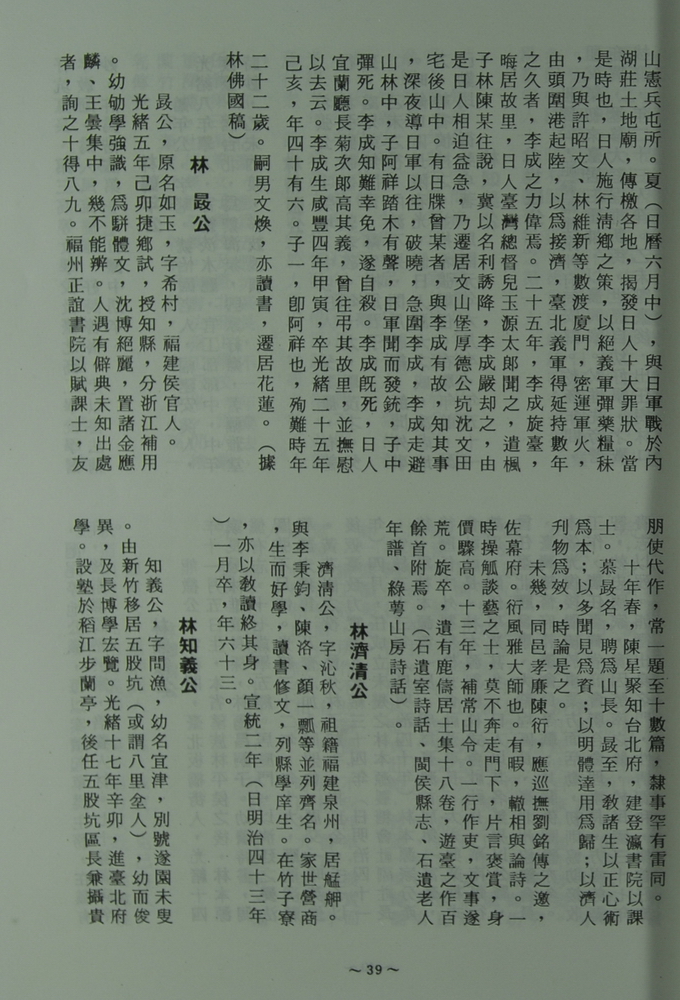 山憲兵屯所。夏（日曆六月中），與日軍戰於內
湖莊土地廟，傳檄各地，揭發日人十大罪狀。當
是時也，日人施行清鄉之策，以絕義軍彈藥糧秣
，乃與許昭文、林維新等數渡廈門，密運軍火，
由頭圍港起陸，以爲接濟，臺北義軍得延持數年
之久者，李成之力偉焉。二十五年，李成旋臺，
晦居故里，日人臺灣總督兒玉源太郎聞之，遣楓
子林陳某往說，冀以名利誘降，李成嚴却之，由
是日人相迫益急，乃遷居文山堡厚德公坑沈文田
宅後山中。有日牒曾某者，與李成有故，知其事
，深夜導日軍以往，破曉，急圍李成，李成走避
山林中，子阿祥踏木有聲，日軍聞而發銃，子中
彈死。李成知難幸免，遂自殺。李成旣死，日人
宜蘭廳長菊次郎高其義，曾往弔其故里，並撫慰
以去云。李成生咸豐四年甲寅，卒光緒二十五年
己亥，年四十有六。子一，卽阿祥也，殉難時年
二十二歲。嗣男文煥，亦讀書，遷居花蓮。（據
林佛國稿）
林　晸公
晸公，原名如玉，字希村，福建侯官人。
光緒五年己卯捷鄉試，授知縣，分浙江補用
。幼劬學強識，爲駢體文，沈博絕麗，置諸金應
麟、王曇集中，幾不能辨。人遇有僻典未知出處
者，詢之十得八九。福州正誼書院以賦課士，友
朋使代作，常一題至十數篇，隸事罕有雷同。
十年春，陳星聚知台北府，建登瀛書院以課
士。慕晸名，聘爲山長。晸至，敎諸生以正心術
爲本；以多聞見爲資；以明體達用爲歸；以濟人
利物爲效，時論是之。
未幾，同邑孝廉陳衍，應巡撫劉銘傳之邀，
佐幕府。衍風雅大師也。有暇，轍相與論詩。一
時操觚談藝之士，莫不奔走門下，片言褒賞，身
價驟高。十三年，補常山令。一行作吏，文事遂
荒。旋卒，遺有鹿儔居士集十八卷，遊臺之作百
餘首附焉。（石遺室詩話、閩侯縣志、石遺老人
年譜、綠萼山房詩話）。
林濟清公
濟清公，字沁秋，祖籍福建泉州，居艋舺。
與李秉鈞、陳洛、顏一瓢等並列齊名。家世營商
，生而好學，讀書修文，列縣學庠生。在竹子寮
，亦以敎讀終其身。宣統二年（日明治四十三年
）一月卒，年六十三。
林知義公
知義公，字問漁，幼名宜津，別號遂園未叟
。由新竹移居五股坑（或謂八里坌人），幼而俊
異，及長博學宏覽。光緒十七年辛卯，進臺北府
學。設塾於稻江步蘭亭，後任五股坑區長兼攝貴
～39～